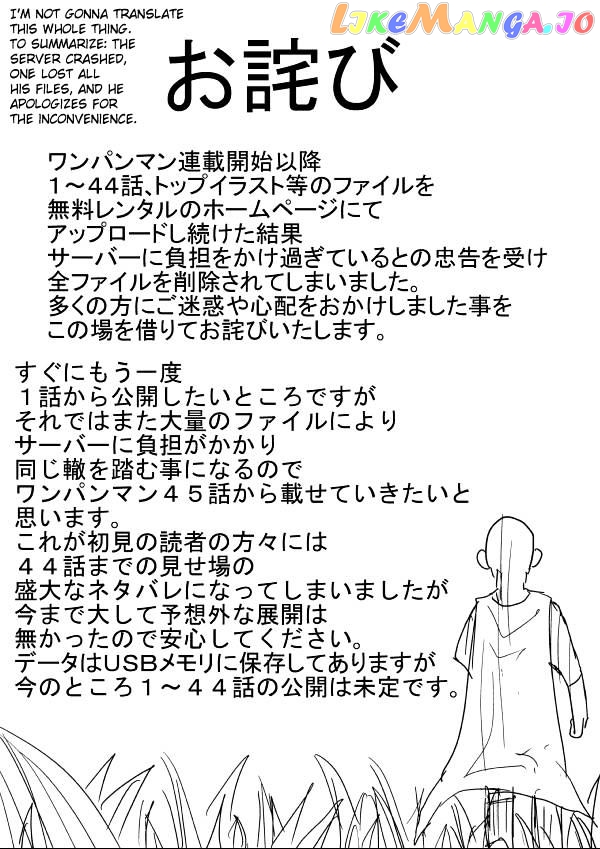 I'M NOT GONNA TRANSLATE
THIS WHOLE THING.
TO SUMMARIZE: THE
SERVER CRASHED,
ONE LOST ALL
HIS FILES, AND HE
APOLOGIZES FOR
THE INCONVENIENCE.
LIKEMANGA.IO
お詫び
ワンパンマン連載開始以降
１～４４話、トップイラスト等のファイルを
無料レンタルのホームページにて
アップロードし続けた結果
サーバーに負担をかけ過ぎているとの忠告を受け
全ファイルを削除されてしまいました。
多くの方にご迷惑や心配をおかけしました事を
この場を借りてお詫びいたします。
すぐにもう一度
１話から公開したいところですが
それではまた大量のファイルにより
サーバーに負担がかかり
同じ轍を踏む事になるので
ワンパンマン４５話から載せていきたいと
思います。
これが初見の読者の方々には
４４話までの見せ場の
盛大なネタバレになってしまいましたが
今まで大して予想外な展開は
無かったので安心してください。
データはＵＳＢメモリに保存してありますが
今のところ１～４４話の公開は未定です。